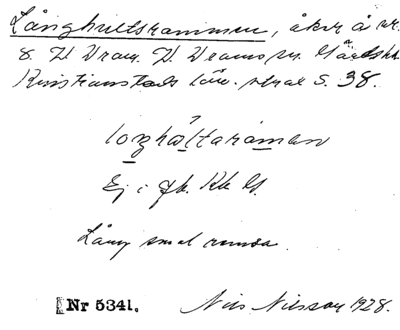 Långhultsrammen, åker å nr.
8. V Vram. V. Vrams sn. Gärds hd.
Kristianstads län. skrat S. 38.
lonhåltaraman
Ej i jb. Rk G.
Lång smal remsa.
Nr 5341. Nils Nilsson 1928.